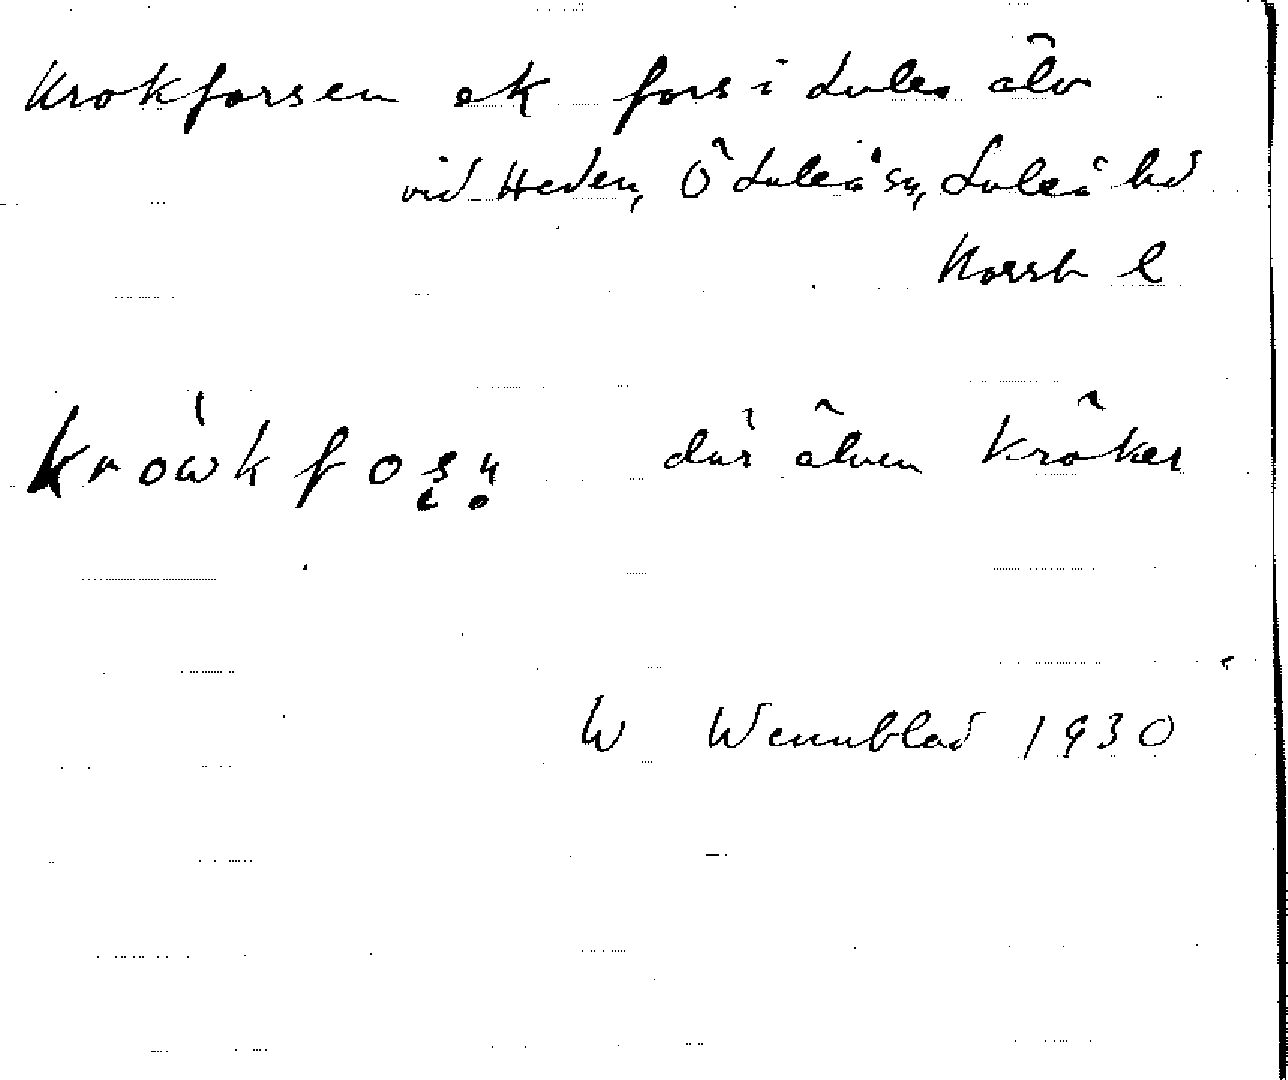 Krokforsen ek fors i Lule älv
vid Heden, Ö Luleå sn, Luleå hd
Norrb l
där älven kröker
W Wennblad 1930